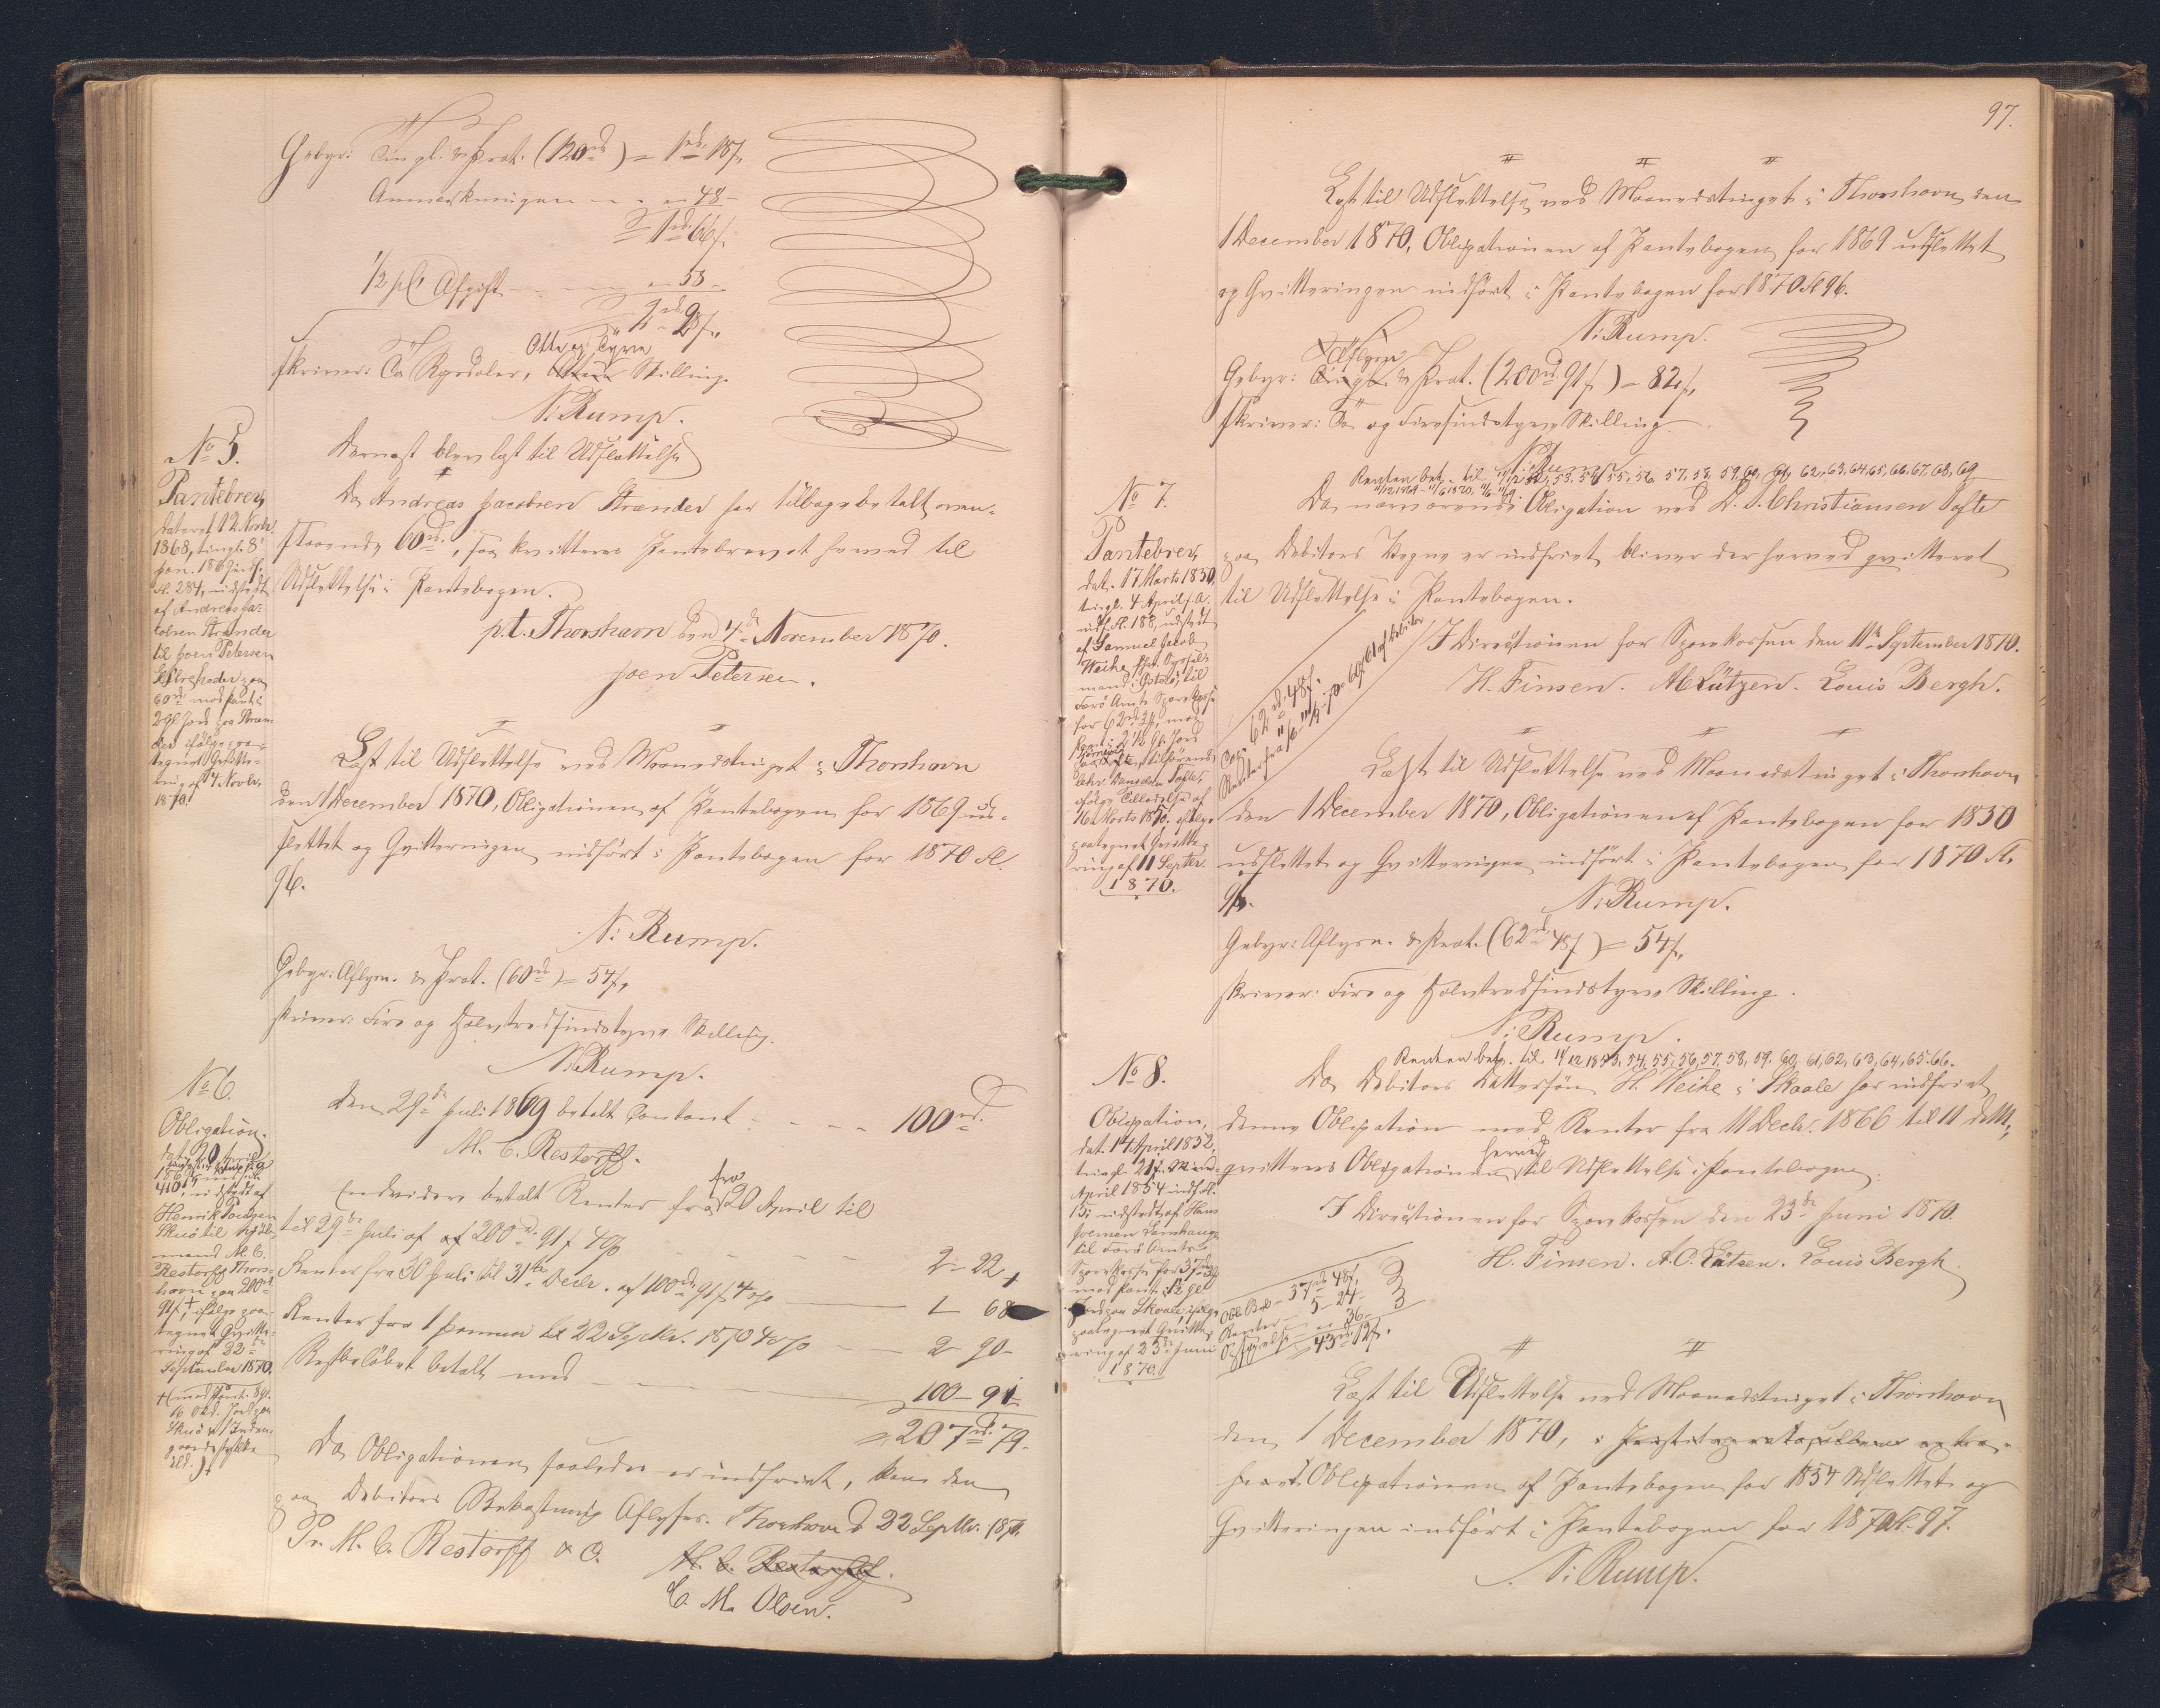 Gebyr: Tingl. & Prot. (120 rd) = 1 rd 18 s.
Anmærkningen — 48 -
= 1 rd 66 s.
1/2 pCt Afgift — 58 -
= 2 rd 28 s.
Otte og Tyve
skriver: To Rigsdaler, Skilling.
N. Rump.
No 5.
Pantebrev,
dateret 12 Novbr.
1868, tingl. 8
Jan. 1869 indf.
fl. 284, udstedt
af Andreas Ja-
cobsen Strænder
til Joen Petersen
paa
60 rd mod Pant i
2 gl. Jord paa
ifølge paa-
tegnet Qvitte-
ring af 4 Novbr.
1870.
Dernæst blev læst til Udslettelse
Da Andreas Jacobsen Strænder har tilbagebetalt oven-
staaende 60 rd, saa kvitteres Pantebrevet herved til
Udslettelse i Pantebogen.
p.t. Thorshavn den 4de November 1870.
Joen Petersen.
Læst til Udslettelse ved Maanedstinget i Thorshavn
den 1 December 1870, Obligationen af Pantebogen for 1869 ud-
slettet og Qvitteringen indført i Pantebogen for 1870 fl.
96.
N. Rump.
Gebyr: Aflysn. & Prot. (60 rd) = 54 s.
skriver: Fire og Halvtredsindstyve Skilling.
N. Rump.
No 6.
Obligation,
dat. 20 April
410, udstedt af
Henrik Poulsen
Skuø til Kjøb-
mand M. C.
Restorff Thors-
havn paa 200 rd
91 s. +, ifølge paa-
tegnet Qvitte-
ring af 22
September 1870.
+ (mod Pant i 8 gl.
Jord paa
Skuø
Den 29de Juli 1869 betalt Contant — 100 rd.
M. C. Restorff.
Endvidere betalt Renter fra 20 April til
til 29de Juli af 200 rd 91 s 4 % — 2 - 22
Renter fra 30 Juli til 31te Decbr. af 100 rd 91 s 4 % — 1 - 68
Renter fra 1 Januar til 22 Septbr. 1870 4 % — 2 - 90 -
Restbeløbet betalt med — 100 - 91
= 207 rd 79.
Da Obligationen saaledes er indfriet, kan den
paa Debitors Bekostning Aflyses. Thorshavn d 22 Septbr. 1870.
Pr. M. C. Restorff & C.
M. C. Restorff.
C. M. Olsen.
97.
Læst til Udslettelse ved Maanedstinget i Thorshavn den
1 December 1870, Obligationen af Pantebogen for 1869 udslettet
og Qvitteringen indført i Pantebogen for 1870 fl 96.
N. Rump.
Aflysn
Gebyr: Tingl. & Prot. (200 rd 91 s) = 82 s.
skriver: To og Firesindstyve Skilling.
N. Rump.
No 7.
Pantebrev,
dat. 17 Marts 1850,
tingl. 4 April s.A.
indf. fl. 188, udstedt
af Samuel Jacob
Weihe,
mand i Østerø, til
Færø Amts Sparekasse
for 62 rd 3 mod
Pant i 2 1/2 gl. Jord
tilhørende
ifølge Tilladelse af
16 Marts 1850. ifølge
paategnet Qvitte-
ring af 11 Septbr.
1870.
Renten bet. til 11/12 52, 53. 54, 55, 56, 57, 58, 59, 60, 61, 62, 63, 64, 65, 66, 67, 68, 69
Da nærværende Obligation ved D. J. Christiansen Tofte
paa Debitors Vegne er indfriet bliver der herved qvitteret
til Udslettelse i Pantebogen.
I Directionen for Sparekassen den 11te September 1870.
H. Finsen. A C Lützen. Louis Bergh.
Cap. 62 rd 48 s.
Læst til Udslettelse ved Maanedstinget i Thorshavn
den 1 December 1870, Obligationen af Pantebogen for 1850
udslettet og Qvitteringen indført i Pantebogen for 1870 fl.
96.
N. Rump.
Gebyr: Aflysn. & Prot. (62 rd 48 s) = 54 s.
skriver: Fire og Halvtredsindstyve Skilling.
N. Rump.
No 8.
Obligation,
dat. 14 April 1852,
April 1854 indf. fl.
15, udstedt af Hans
til Færø Amts
Sparekasse for 37 rd
mod Pant i 2 gl
Jord paa Skaale, ifølge
paategnet Qvitte-
ring af 23de Juni
1870.
Renten bet. til 11/12 1853, 54, 55, 56, 57, 58, 59, 60, 61, 62, 63, 64, 65. 66.
Da Debitors Dattersøn H. Weihe i Skaale har indfriet
denne Obligation med Renter fra 11 Decbr. 1866 til 11 ds,
herved
qvitteres Obligationen til Udslettelse i Pantebogen.
I Directionen for Sparekassen den 23de Juni 1870.
H. Finsen. A. C. Lützen. Louis Bergh.
Obl. Beløb — 37 rd 48 s.
Renter — 5 - 24 -
— 36 -
= 43 rd 12 s.
Læst til Udslettelse ved Maanedstinget i Thorshavn
den 1 December 1870,
Obligationen af Pantebogen for 1854 Udslettet og
Qvitteringen indført i Pantebogen for 1870 fl. 97.
N. Rump.